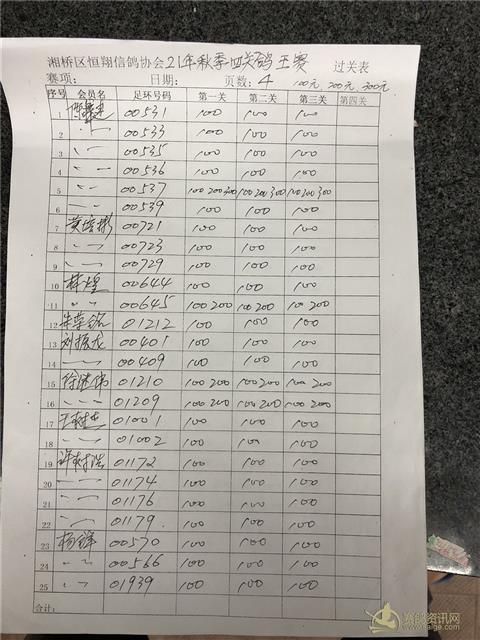 湘桥区恒翔信鸽协会21年秋季四关鸽王赛 过关表
赛项: 日期: 页数: 4 100元, 200元, 300元
序号 会员名 足环号码 第一关 第二关 第三关 第四关
1 00531 100 100 100
2 〃 00533 100 100 100
3 〃 00535 100 100 100
4 〃 00536 100 100 100
5 〃 00537 100 200 300 100 200 300 100 200 300
6 〃 00539 100 100 100
7 黄培彬 00721 100 100 100
8 〃 00723 100 100 100
9 〃 00729 100 100 100
10 林煌 00644 100 100 100
11 〃 00645 100 200 100 200 100 200
12 朱荣铭 01212 100 100 100
13 刘振龙 00401 100 100 100
14 〃 00409 100 100 100
15 徐继伟 01210 100 200 100 200 100 200
16 〃 01209 100 200 100 200 100 200
17 王树生 01001 100 100 100
18 〃 01002 100 100 100
19 许树浩 01172 100 100 100
20 〃 01174 100 100 100
21 〃 01176 100 100 100
22 〃 01179 100 100 100
23 杨锋 00570 100 100 100
24 〃 00566 100 100 100
25 〃 01939 100 100 100
合计:
赛鸽资讯网
www.saige.com